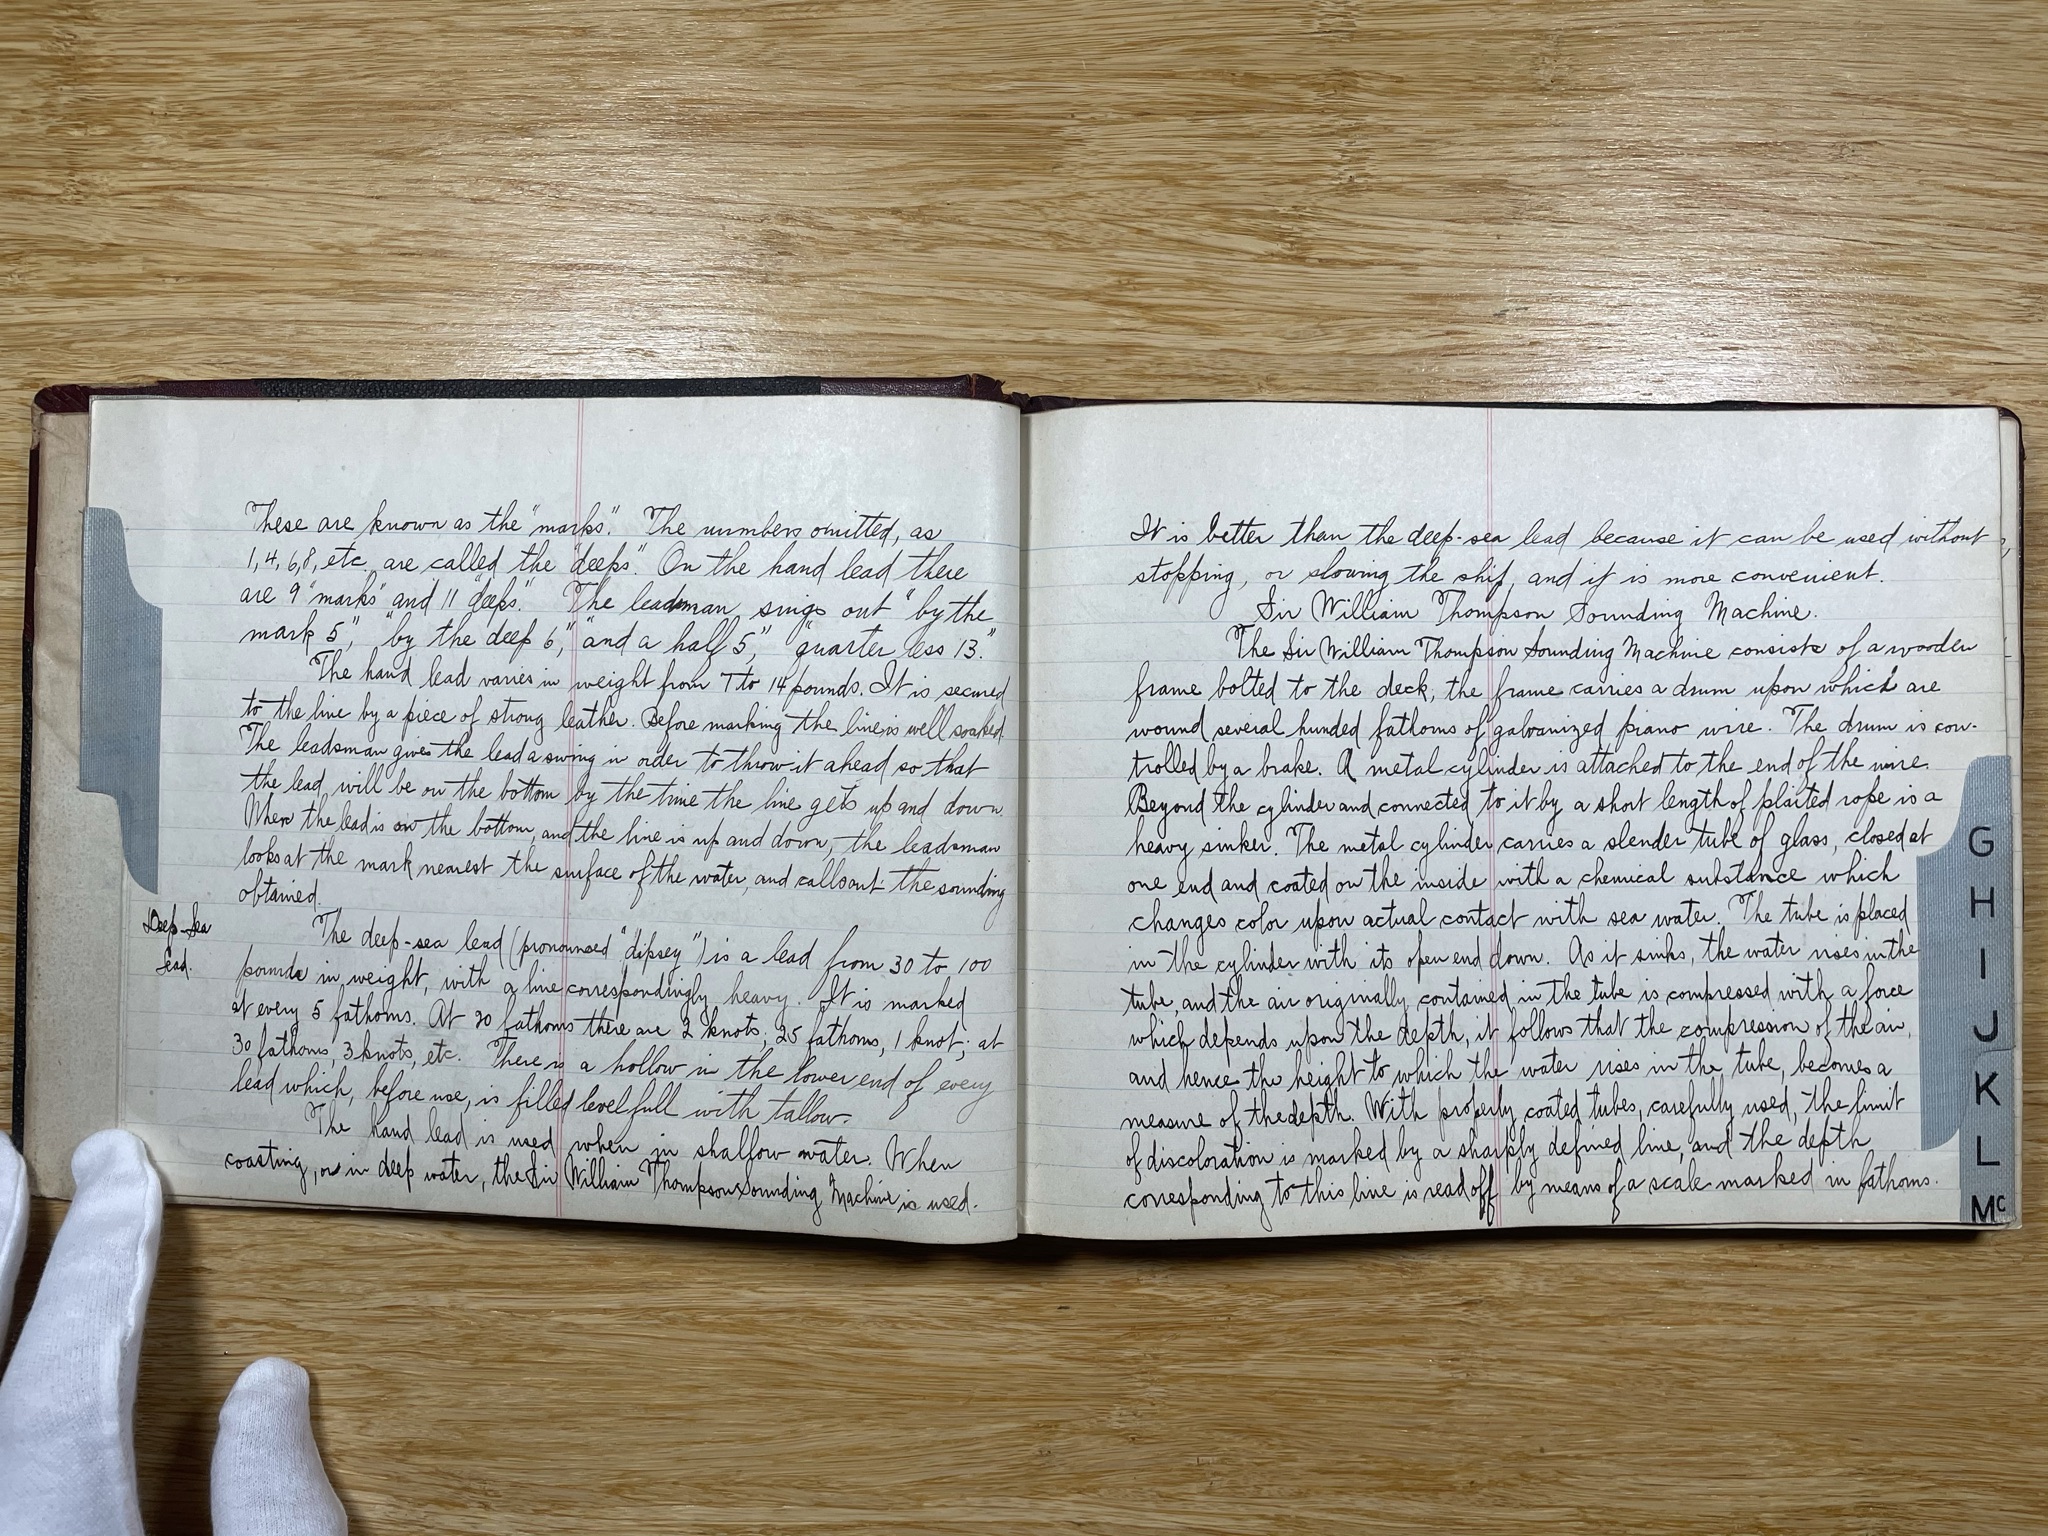 These are known as the "marks". The numbers omitted, as
1, 4, 6, 8, etc. are called the "deeps". On the hand lead there
are 9 "marks" and 11 "deeps". The leadsman sings out "by the
mark 5", "by the deep 6," "and a half 5," "quarter less 13."
The hand lead varies in weight from 7 to 14 pounds. It is secured
to the line by a piece of strong leather. Before marking the line is well soaked.
The leadsman gives the lead a swing in order to throw it ahead so that
the lead will be on the bottom by the time the line gets up and down.
When the lead is on the bottom, and the line is up and down, the leadsman
looks at the mark nearest the surface of the water, and calls out the sounding
obtained.
Deep-Sea
Lead.
The deep-sea lead (pronounced "dipsey") is a lead from 30 to 100
pounds in weight, with a line correspondingly heavy. It is marked
at every 5 fathoms. At 20 fathoms there are 2 knots; 25 fathoms, 1 knot; at
30 fathoms, 3 knots, etc. There is a hollow in the lower end of every
lead which, before use, is filled level full with tallow.
The hand lead is used when in shallow water. When
coasting, or in deep water, the Sir William Thompson Sounding Machine is used.
It is better than the deep-sea lead because it can be used without
stopping, or slowing the ship, and it is more convenient.
Sir William Thompson Sounding Machine.
The Sir William Thompson Sounding Machine consists of a wooden
frame bolted to the deck, the frame carries a drum upon which are
wound several hunded fathoms of galvanized piano wire. The drum is con-
trolled by a brake. A metal cylinder is attached to the end of the wire.
Beyond the cylinder and connected to it by a short length of plaited rope is a
heavy sinker. The metal cylinder carries a slender tube of glass, closed at
one end and coated on the inside with a chemical substance which
changes color upon actual contact with sea water. The tube is placed
in the cylinder with its open end down. As it sinks, the water rises in the
tube, and the air originally contained in the tube is compressed with a force
which depends upon the depth, it follows that the compression of the air,
and hence the height to which the water rises in the tube, becomes a
measure of the depth. With properly coated tubes, carefully used, the limit
of discoloration is marked by a sharply defined line, and the depth
corresponding to this line is read off by means of a scale marked in fathoms.
G
H
I
J
K
L
Mc